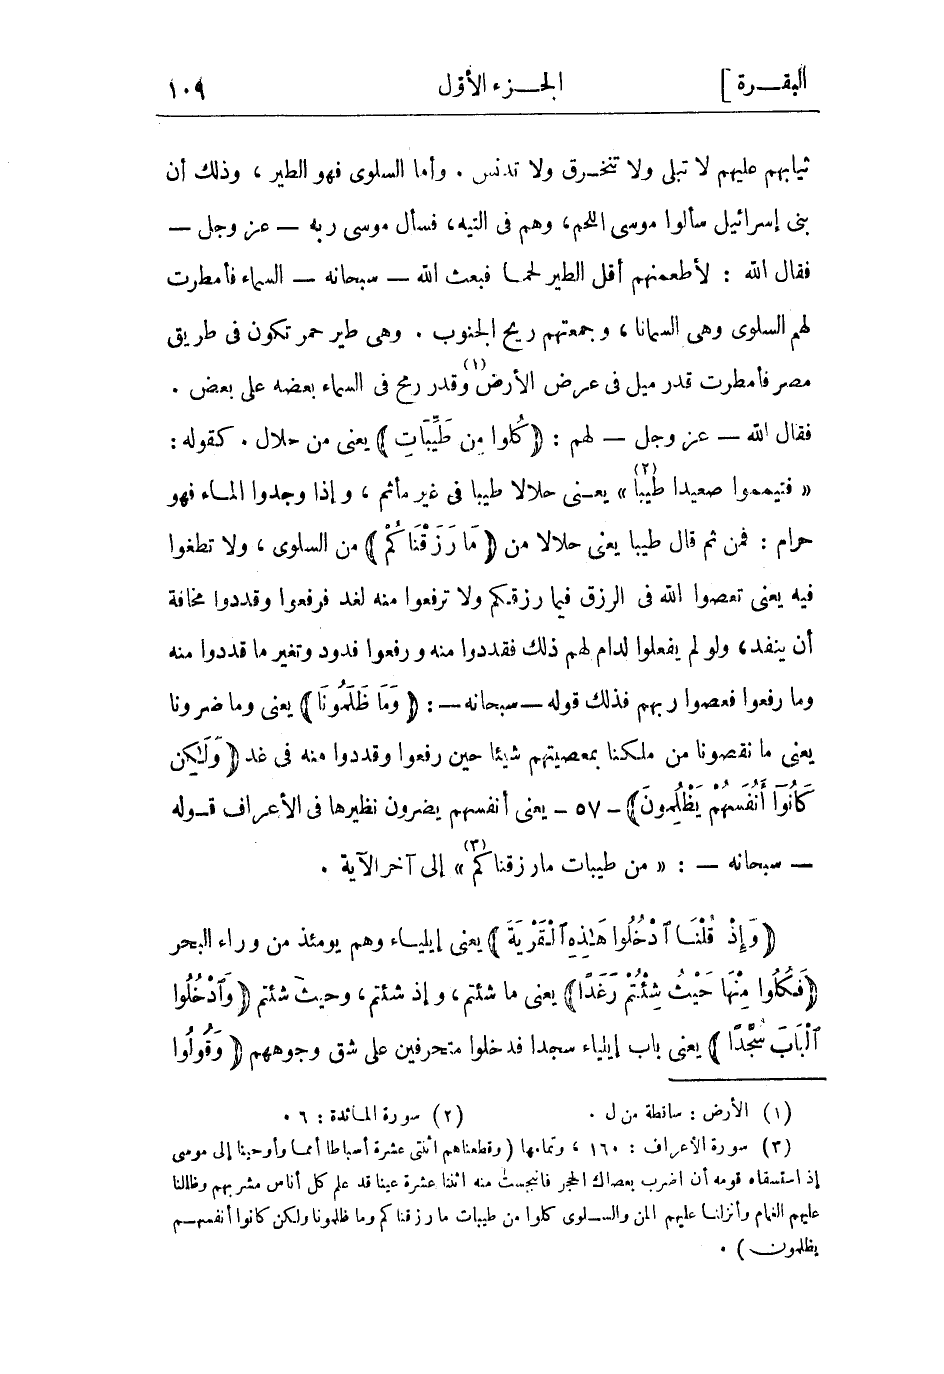 البقـــرة ]
الجـــزء الأول
١٠٩
ثيابهم عليهم لا تبلى ولا تتخـرق ولا تدنس . وأما السلوى فهو الطير ، وذلك أن
بنى إسرائيل سألوا موسى اللحم، وهم فى التيه، فسأل موسى ربه — عز وجل —
فقال الله : لأطعمنهم أقل الطير لحمـا فبعث الله — سبحانه — السماء فأمطرت
لهم السلوى وهى السمانا ، وجمعتهم ريح الجنوب . وهى طير حمر تكون فى طريق
مصر فأمطرت قدر ميل فى عرض الأرض (١) وقدر رمح فى السماء بعضه على بعض .
فقال الله — عز وجل — لهم : ﴿ كُلُوا مِن طَيِّبَاتِ ﴾ يعنى من حلال . كقوله :
« فتيمموا صعيدا طيبا (٢) » يعـنى حلالا طيبا فى غير مأثم ، وإذا وجدوا المـاء فهو
حرام : فمن ثم قال طيبا يعنى حلالا من ﴿ مَا رَزَقْنَاكُمْ ﴾ من السلوى ، ولا تطغوا
فيه يعنى تعصوا الله فى الرزق فيما رزقكم ولا ترفعوا منه لغد فرفعوا وقددوا مخافة
أن ينفد، ولو لم يفعلوا لدام لهم ذلك فقددوا منه ورفعوا فدود وتغير ما قددوا منه
وما رفعوا فعصوا ربهم فذلك قوله —سبحانه— : ﴿ وَمَا ظَلَمُونَا ﴾ يعنى وما ضرونا
يعنى ما نقصونا من ملكنا بمعصيتهم شيئا حين رفعوا وقددوا منه فى غد ﴿ وَلَٰكِن
كَانُوٓا أَنفُسَهُمْ يَظْلِمُونَ ﴾ - ٥٧ - يعنى أنفسهم يضرون نظيرها فى الأعراف قـوله
— سبحانه — : « من طيبات مارزقناكم (٣) » إلى آخر الآية .
﴿ وَإِذْ قُلْنَـا ٱدْخُلُوا هَٰذِهِ ٱلْقَرْيَةَ ﴾ يعنى إيليـاء وهم يومئذ من وراء البحر
﴿ فَكُلُوا مِنْهَا حَيْثُ شِئْتُمْ رَغَدًا ﴾ يعنى ما شئتم ، وإذ شئتم ، وحيث شئتم ﴿ وَٱدْخُلُوا
ٱلْبَابَ سُجَّدًا ﴾ يعنى باب إيلياء سجدا فدخلوا متحرفين على شق وجوههم ﴿ وَقُولُوا
(١) الأرض : ساقطة من ل .
(٢) سورة المـائدة : ٦ .
(٣) سورة الأعراف : ١٦٠ ، وتمامها ( وقطعناهم اثنتى عشرة أسباطا أممـا وأوحينا إلى موسى
إذ استسقاه قومه أن اضرب بعصاك الحجر فانبجست منه اثنتا عشرة عينا قد علم كل أناس مشربهم وظللنا
عليهم الغمام وأنزلنـا عليهم المن والســلوى كلوا من طيبات مارزقناكم وما ظلمونا ولكن كانوا أنفسهـم
يظلمون ) .